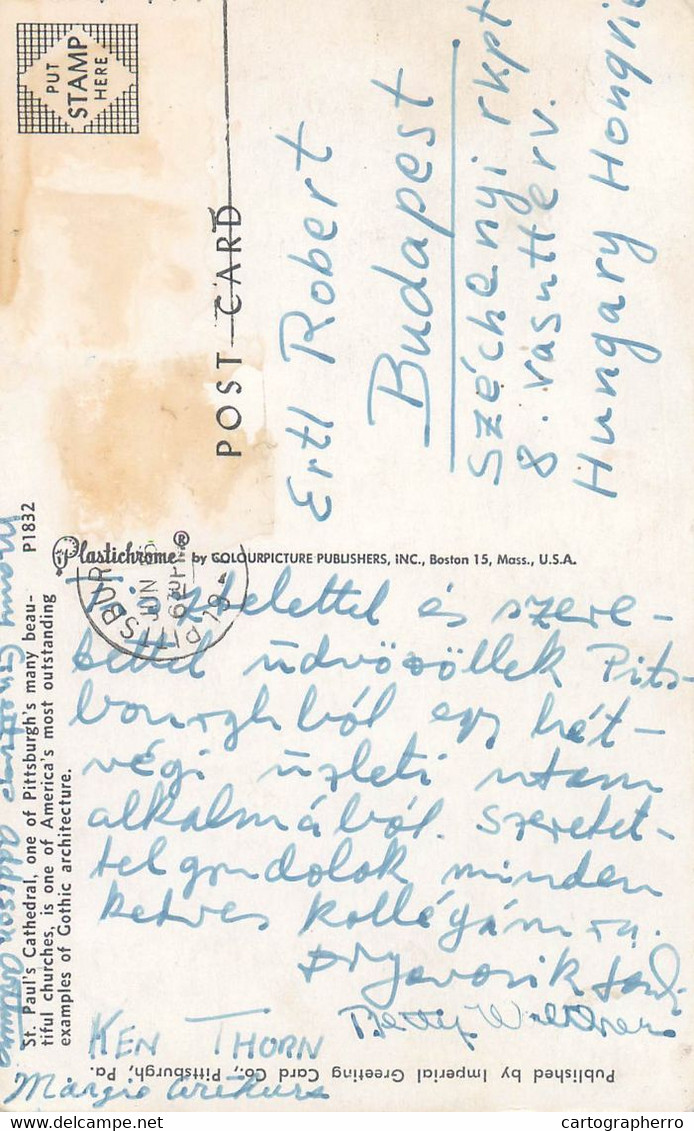 PUT
STAMP
HERE
POST CARD
Ertl Robert
Budapest
Széchenyi rkpt
8. vasútterv.
Hungary Hongrie
St. Paul's Cathedral, one of Pittsburgh's many beau-
tiful churches, is one of America's most outstanding
examples of Gothic architecture.
P1832
Plastichrome® by COLOURPICTURE PUBLISHERS, INC., Boston 15, Mass., U.S.A.
PITTSBUR
JUN
PM
Tisztelettel és szere-
tettel üdvözöllek Pits-
bourghból egy hét-
végi üzleti utam
alkalmából. Szeretet-
tel gondolok minden
kedves kollégámra.
KEN THORN
Betty
Margie
Published by Imperial Greeting Card Co., Pittsburgh, Pa.
cartographerro